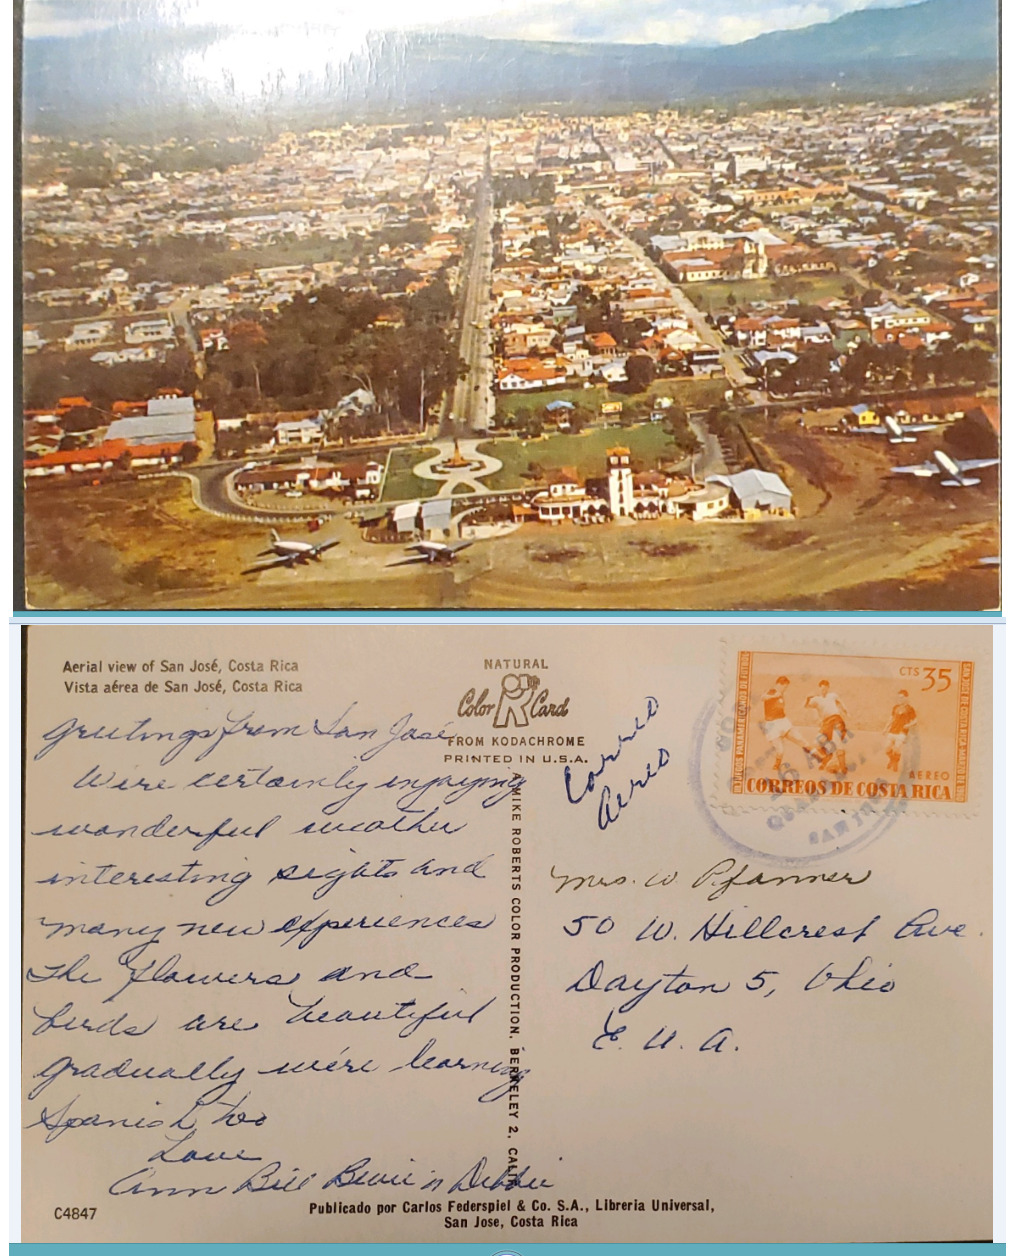 Aerial view of San José, Costa Rica
Vista aérea de San José, Costa Rica
Greetings from San José
We're certainly enjoying
wonderful weather
interesting sights and
many new experiences
The flowers and
birds are beautiful
gradually we're learning
Spanish too
Love
Ann Bill Debbie
C4847
NATURAL
Color Card
FROM KODACHROME
PRINTED IN U.S.A.
A MIKE ROBERTS COLOR PRODUCTION, BERKELEY 2, CALIF.
Publicado por Carlos Federspiel & Co. S.A., Libreria Universal,
San Jose, Costa Rica
Correo
Aereo
CTS 35
AEREO
CORREOS DE COSTA RICA
SAN JOSE
Mrs. W Pfanner
50 W. Hillcrest Ave.
Dayton 5, Ohio
E. U. A.